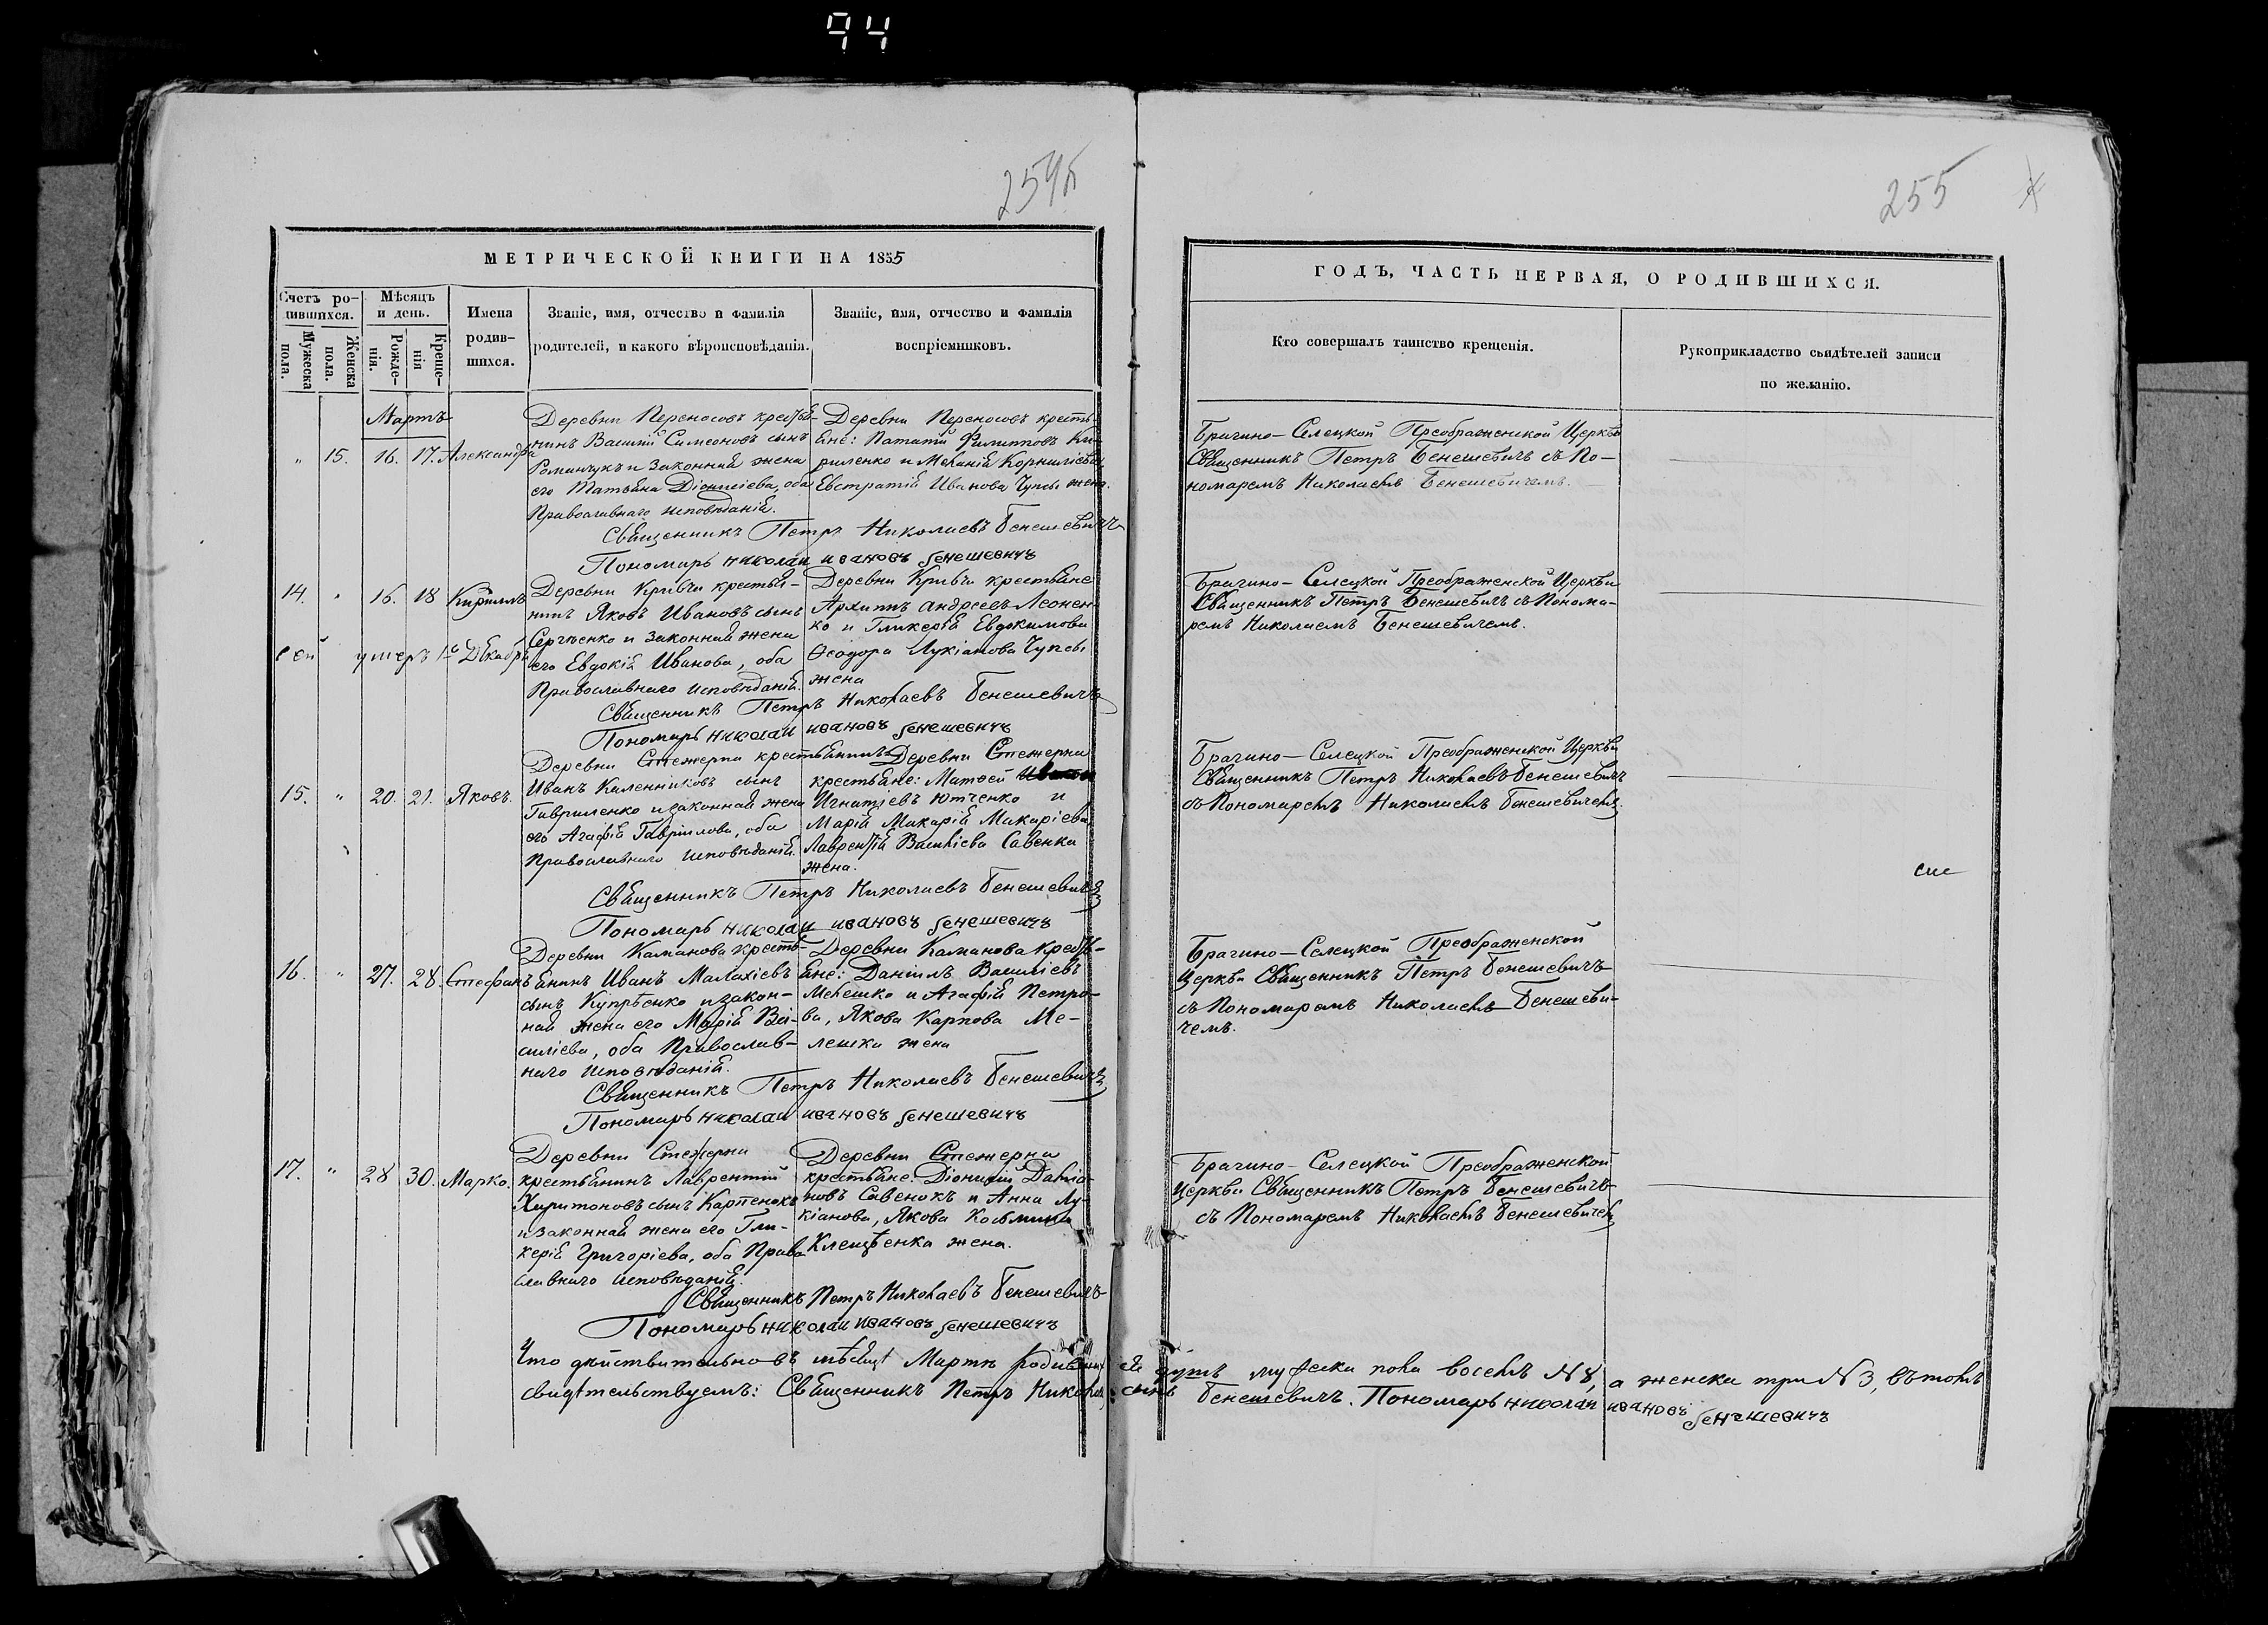 94
254б
255
МЕТРИЧЕСКОЙ КНИГИ НА 1855
ГОДЪ, ЧАСТЬ ПЕРВАЯ, О РОДИВШИХСЯ.
Счетъ ро-
дившихся.
Мужеска
пола.
Женска
пола.
Мѣсяцъ
и день.
Рожде-
нія.
Креще-
нія
Имена
родив-
шихся.
Званіе, имя, отчество и фамилія
родителей, и какого вѣроисповѣданія.
Званіе, имя, отчество и фамилія
воспріемниковъ.
Кто совершалъ таинство крещенія.
Рукоприкладство свидѣтелей записи
по желанію.
Мартъ
„ 15. 16. 17. Александра
Деревни Переносовъ крестья-
нинъ Василій Симеоновъ сынъ
Романчукъ и законная жена
его Татьяна Діонисіева, оба
Православнаго исповѣданія.
Деревни Переносовъ кресть-
яне: Потапій Филипповъ Ки-
риленко и Меланія Корниліева
Евстратія Иванова Чупсы жена.
Брагино-Селецкой Преображенской Церкви
Священникъ Петръ Бенешевичъ съ По-
номаремъ Николаемъ Бенешевичемъ.
Священникъ Петръ Николаевъ Бенешевичъ
Пономарь николай ивановъ бенешевичъ
14. „ 16. 18 Кириллъ
сей умеръ 1го Декабря
Деревни Кривчи крестья-
нинъ Яковъ Ивановъ сынъ
Сергѣенко и законная жена
его Евдокія Иванова, оба
Православнаго исповѣданія.
Деревни Кривчи крестьяне
Архипъ Андреевъ Леонен-
ко и Гликерія Евдокимова
Ѳеодора Лукіанова Чупсы
жена
Брагино-Селецкой Преображенской Церкви
Священникъ Петръ Бенешевичъ съ Понома-
ремъ Николаемъ Бенешевичемъ.
Священникъ Петръ Николаевъ Бенешевичъ
Пономарь николай ивановъ бенешевичъ
15. „ 20. 21. Яковъ.
Деревни Стежерни крестьянинъ
Иванъ Каленниковъ сынъ
Гавриленко и законная жена
его Агафія Гавріилова, оба
Православнаго исповѣданія.
Деревни Стежерни
крестьяне: Матвей
Игнатіевъ Ютченко и
Марія Макарія Макаріева
Лаврентія Василіева Савенка
жена.
Брагино-Селецкой Преображенской Церкви
Священникъ Петръ Николаевъ Бенешевичъ
съ Пономаремъ Николаемъ Бенешевичемъ
Священникъ Петръ Николаевъ Бенешевичъ
Пономарь николай ивановъ бенешевичъ
16. „ 27. 28. Стефанъ
Деревни Каманова кресть-
янинъ Иванъ Малахіевъ
сынъ Купрѣенко и закон-
ная жена его Марія Ва-
силіева, оба Православ-
наго исповѣданія.
Деревни Каманова кресть-
яне: Даніилъ Василіевъ
Мелешко и Агафія Петро-
ва, Якова Карпова Ме-
лешки жена
Брагино-Селецкой Преображенской
Церкви Священникъ Петръ Бенешевичъ
съ Пономаремъ Николаемъ Бенешеви-
чемъ.
Священникъ Петръ Николаевъ Бенешевичъ
Пономарь николай ивановъ бенешевичъ
17. „ 28 30. Марко.
Деревни Стежерни
крестьянинъ Лаврентій
Харитоновъ сынъ Карпенокъ
и законная жена его Гли-
керія Григоріева, оба Право
славнаго исповѣданія.
Деревни Стежерни
крестьяне: Діонисій Даміа-
новъ Савенокъ и Анна Лу-
кіанова, Якова Косьмина
Клещенка жена.
Брагино-Селецкой Преображенской
Церкви Священникъ Петръ Бенешевичъ
съ Пономаремъ Николаемъ Бенешевичемъ
Священникъ Петръ Николаевъ Бенешевичъ
Пономарь николай ивановъ бенешевичъ
Что дѣйствительно въ мѣсяцѣ Мартѣ мужеска пола восемь N 8, а женска три N 3, въ томъ
свидѣтельствуемъ: Священникъ Петръ сынъ Бенешевичъ. Пономарь николай ивановъ
бенешевичъ